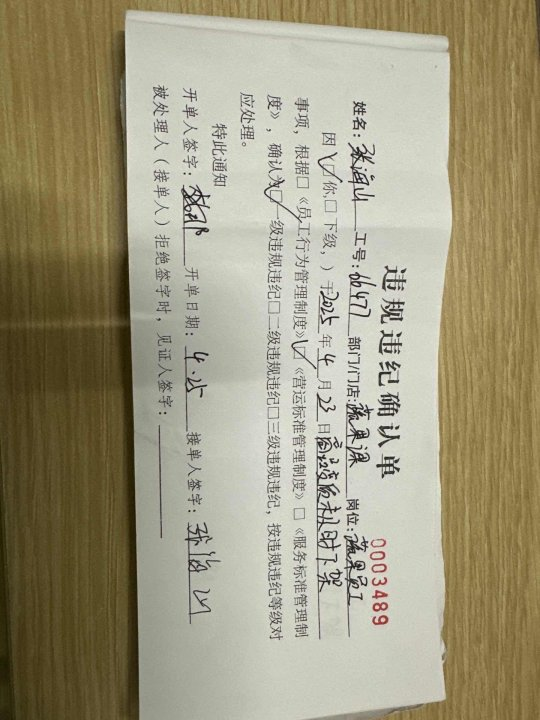 违规违纪确认单
0003489
姓名：张海山 工号：66477 部门/门店：蔬果课 岗位：蔬果员工
因☑你，□下级，）于2025年4月23日商品变质未及时下架
事项，根据□《员工行为管理制度》☑《营运标准管理制度》□《服务标准管理制
度》，确认为☑一级违规违纪□二级违规违纪□三级违规违纪，按违规违纪等级对
应处理。
特此通知
开单人签字： 开单日期：4.25 接单人签字：张海山
被处理人（接单人）拒绝签字时，见证人签字：